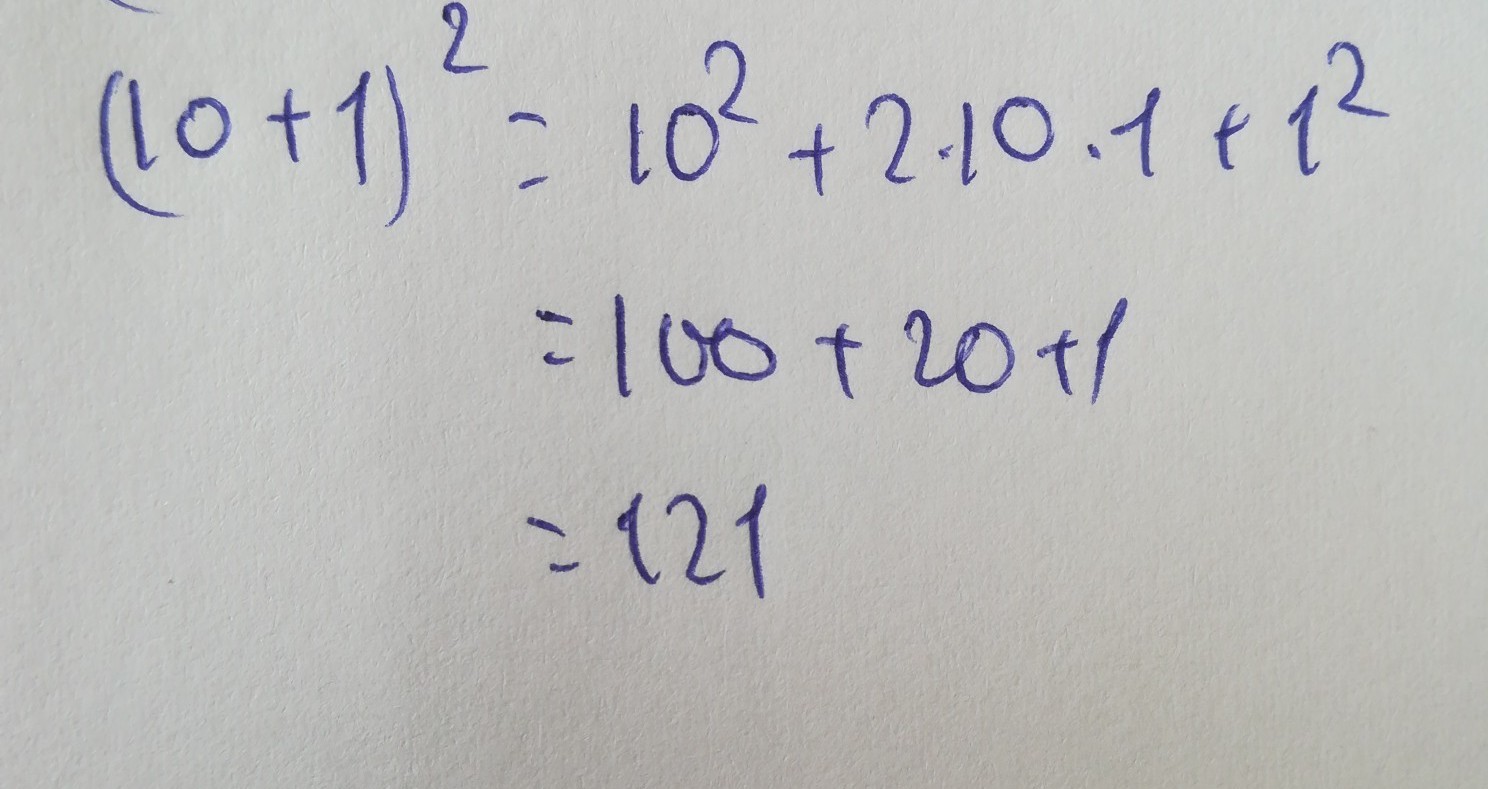 (10+1)² = 10² + 2·10·1 + 1²
= 100 + 20 + 1
= 121